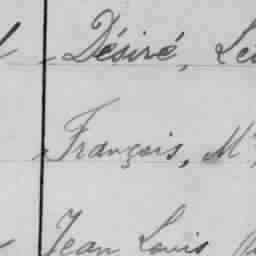 Désiré, Le
François, M
Jean Louis